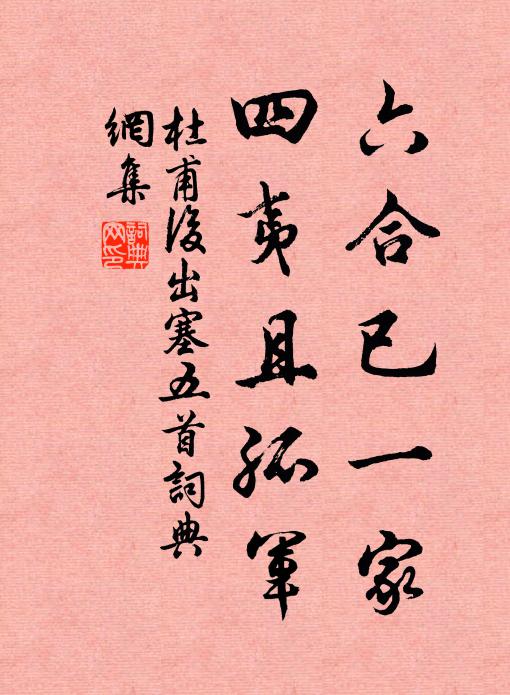 六合已一家
四夷且孤軍
杜甫後出塞五首詞典
網集
詞典
网印